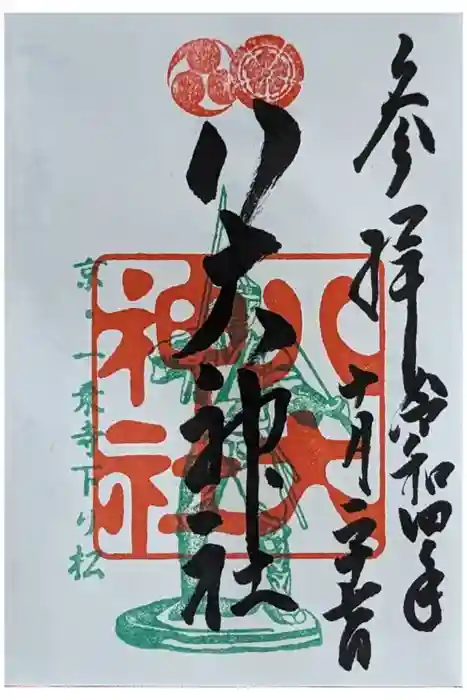 参拝 令和四年
十月二十一日
八大神社
八大神社
京・一乗寺下り松